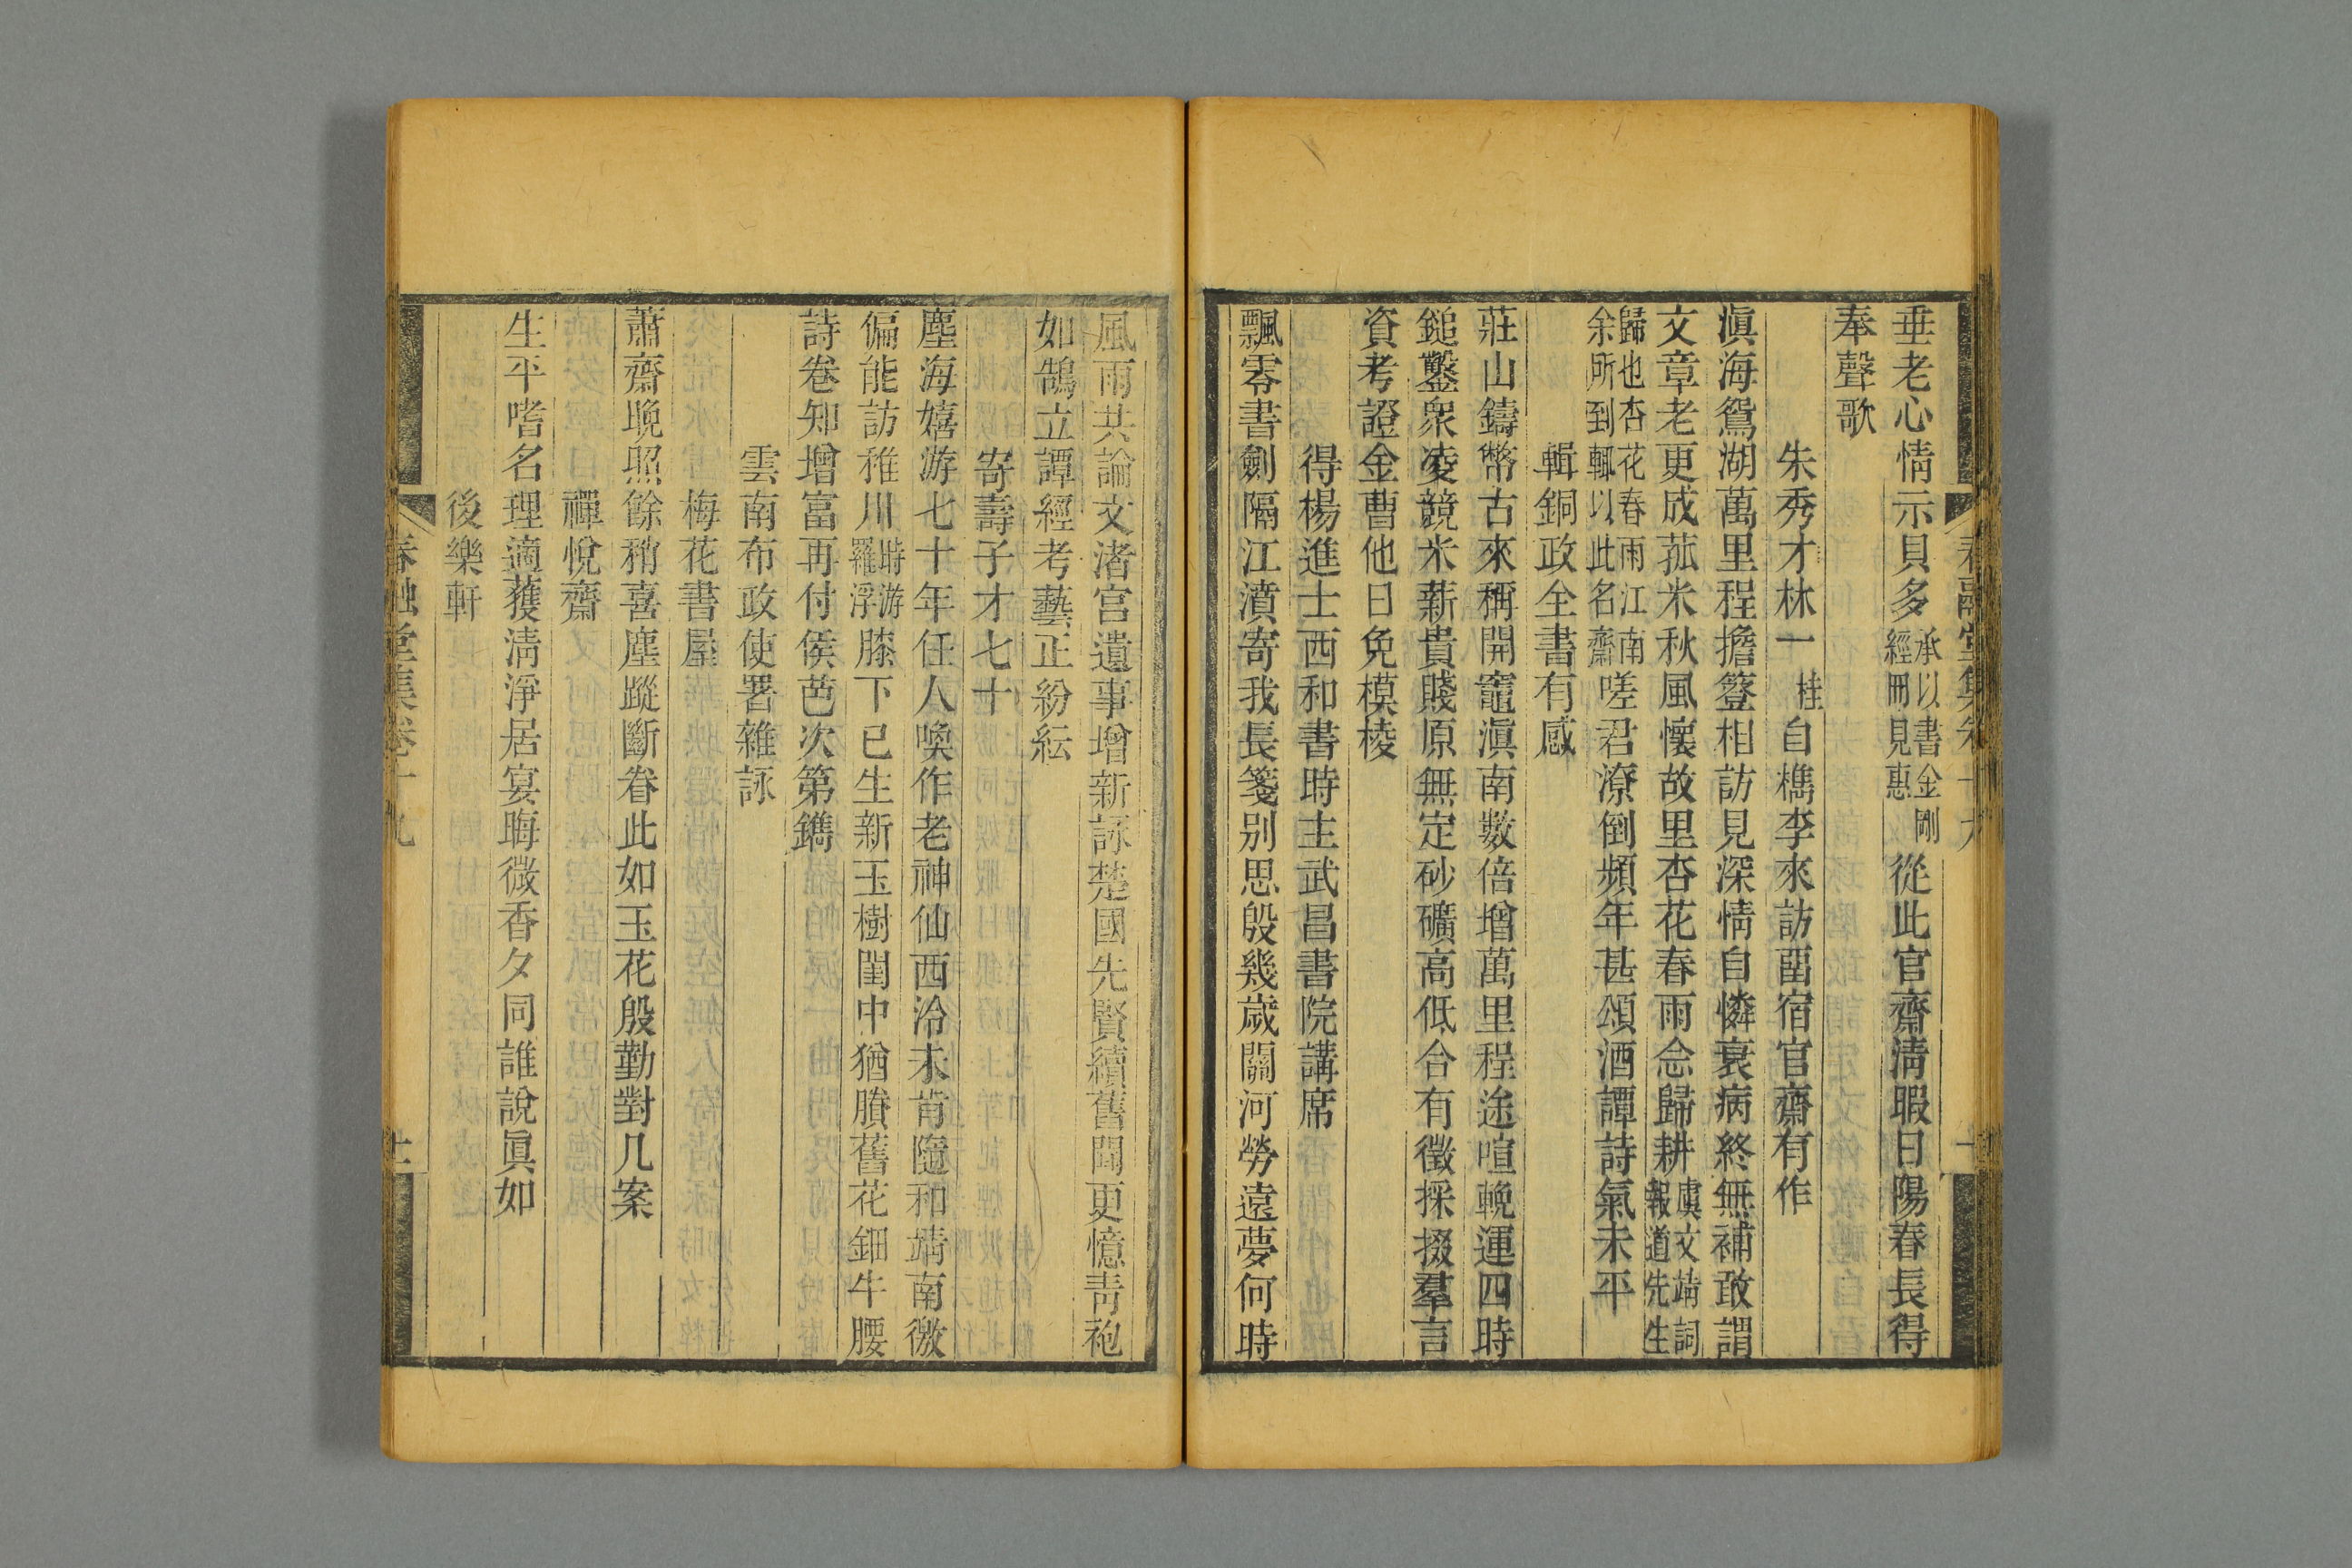 垂老心情示貝多承以書金剛經冊見惠從此官齋清暇日陽春長得
奉聲歌
朱秀才林一桂自檇李來訪畱宿官齋有作
滇海鴛湖萬里程擔簦相訪見深情自憐衰病終無補敢謂
文章老更成菰米秋風懷故里杏花春雨念歸耕虞文靖詞報道先生
歸也杏花春雨江南余所到輒以此名齋嗟君潦倒頻年甚頌酒譚詩氣未平
輯銅政全書有感
莊山鑄幣古來稱開竈滇南數倍增萬里程途喧輓運四時
鎚鑿衆凌競米薪貴賤原無定砂礦高低合有徵採掇羣言
資考證金曹他日免模棱
得楊進士西和書時主武昌書院講席
飄零書劍隔江濆寄我長箋别思殷幾歲關河勞遠夢何時
風雨共論文渚宮遺事增新詠楚國先賢續舊聞更憶靑袍
如鵠立譚經考藝正紛紜
寄壽子才七十
塵海嬉游七十年任人喚作老神仙西泠未肯隨和靖南徼
偏能訪稚川時游羅浮膝下已生新玉樹閨中猶賸舊花鈿牛腰
詩卷知增富再付侯芭次第鐫
雲南布政使署雜詠
梅花書屋
蕭齋晚照餘稍喜塵蹤斷眷此如玉花殷勤對几案
禪悅齋
生平嗜名理適獲淸淨居宴晦微香夕同誰說眞如
後樂軒
春融堂集卷十九